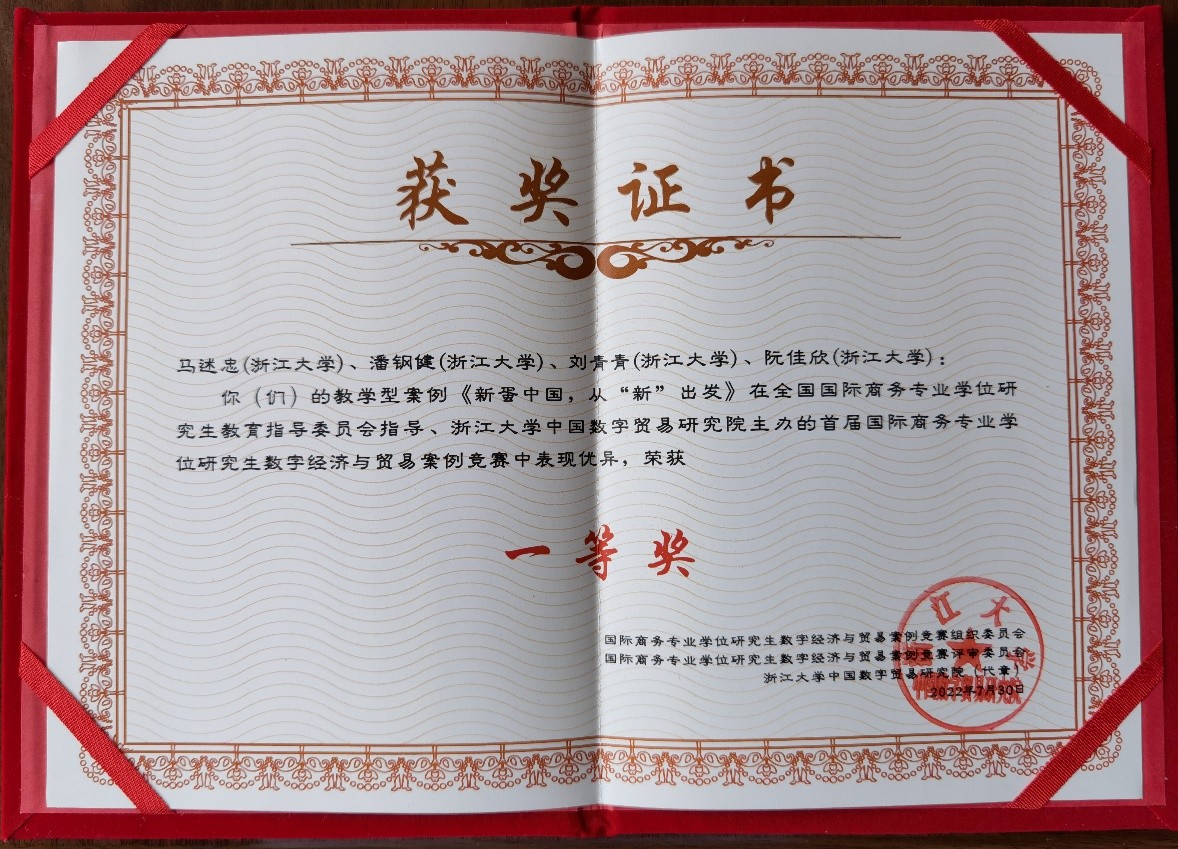 获奖证书
马述忠(浙江大学)、潘钢健(浙江大学)、刘青青(浙江大学)、阮佳欣(浙江大学)：
你（们）的教学型案例《新蛋中国，从“新”出发》在全国国际商务专业学位研
究生教育指导委员会指导、浙江大学中国数字贸易研究院主办的首届国际商务专业学
位研究生数字经济与贸易案例竞赛中表现优异，荣获
一等奖
国际商务专业学位研究生数字经济与贸易案例竞赛组织委员会
国际商务专业学位研究生数字经济与贸易案例竞赛评审委员会
浙江大学中国数字贸易研究院（代章）
2022年7月30日
江大学
中国数字贸易研究院